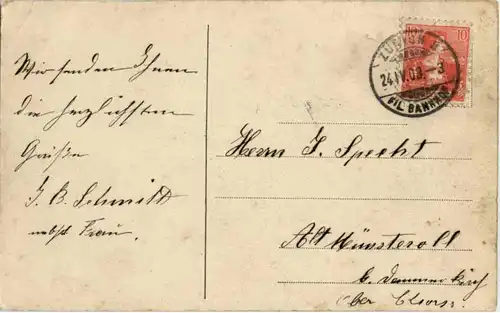 Wir senden Ihnen
die herzlichsten
Grüße
J. B. Schmitt
nebst Frau.
10
ZÜRICH
24.IV.09.-8
FIL. BAHNHOF
Herrn J. Specht
Alt Münsterol
b. Dammerkirch
Ober Elsass.